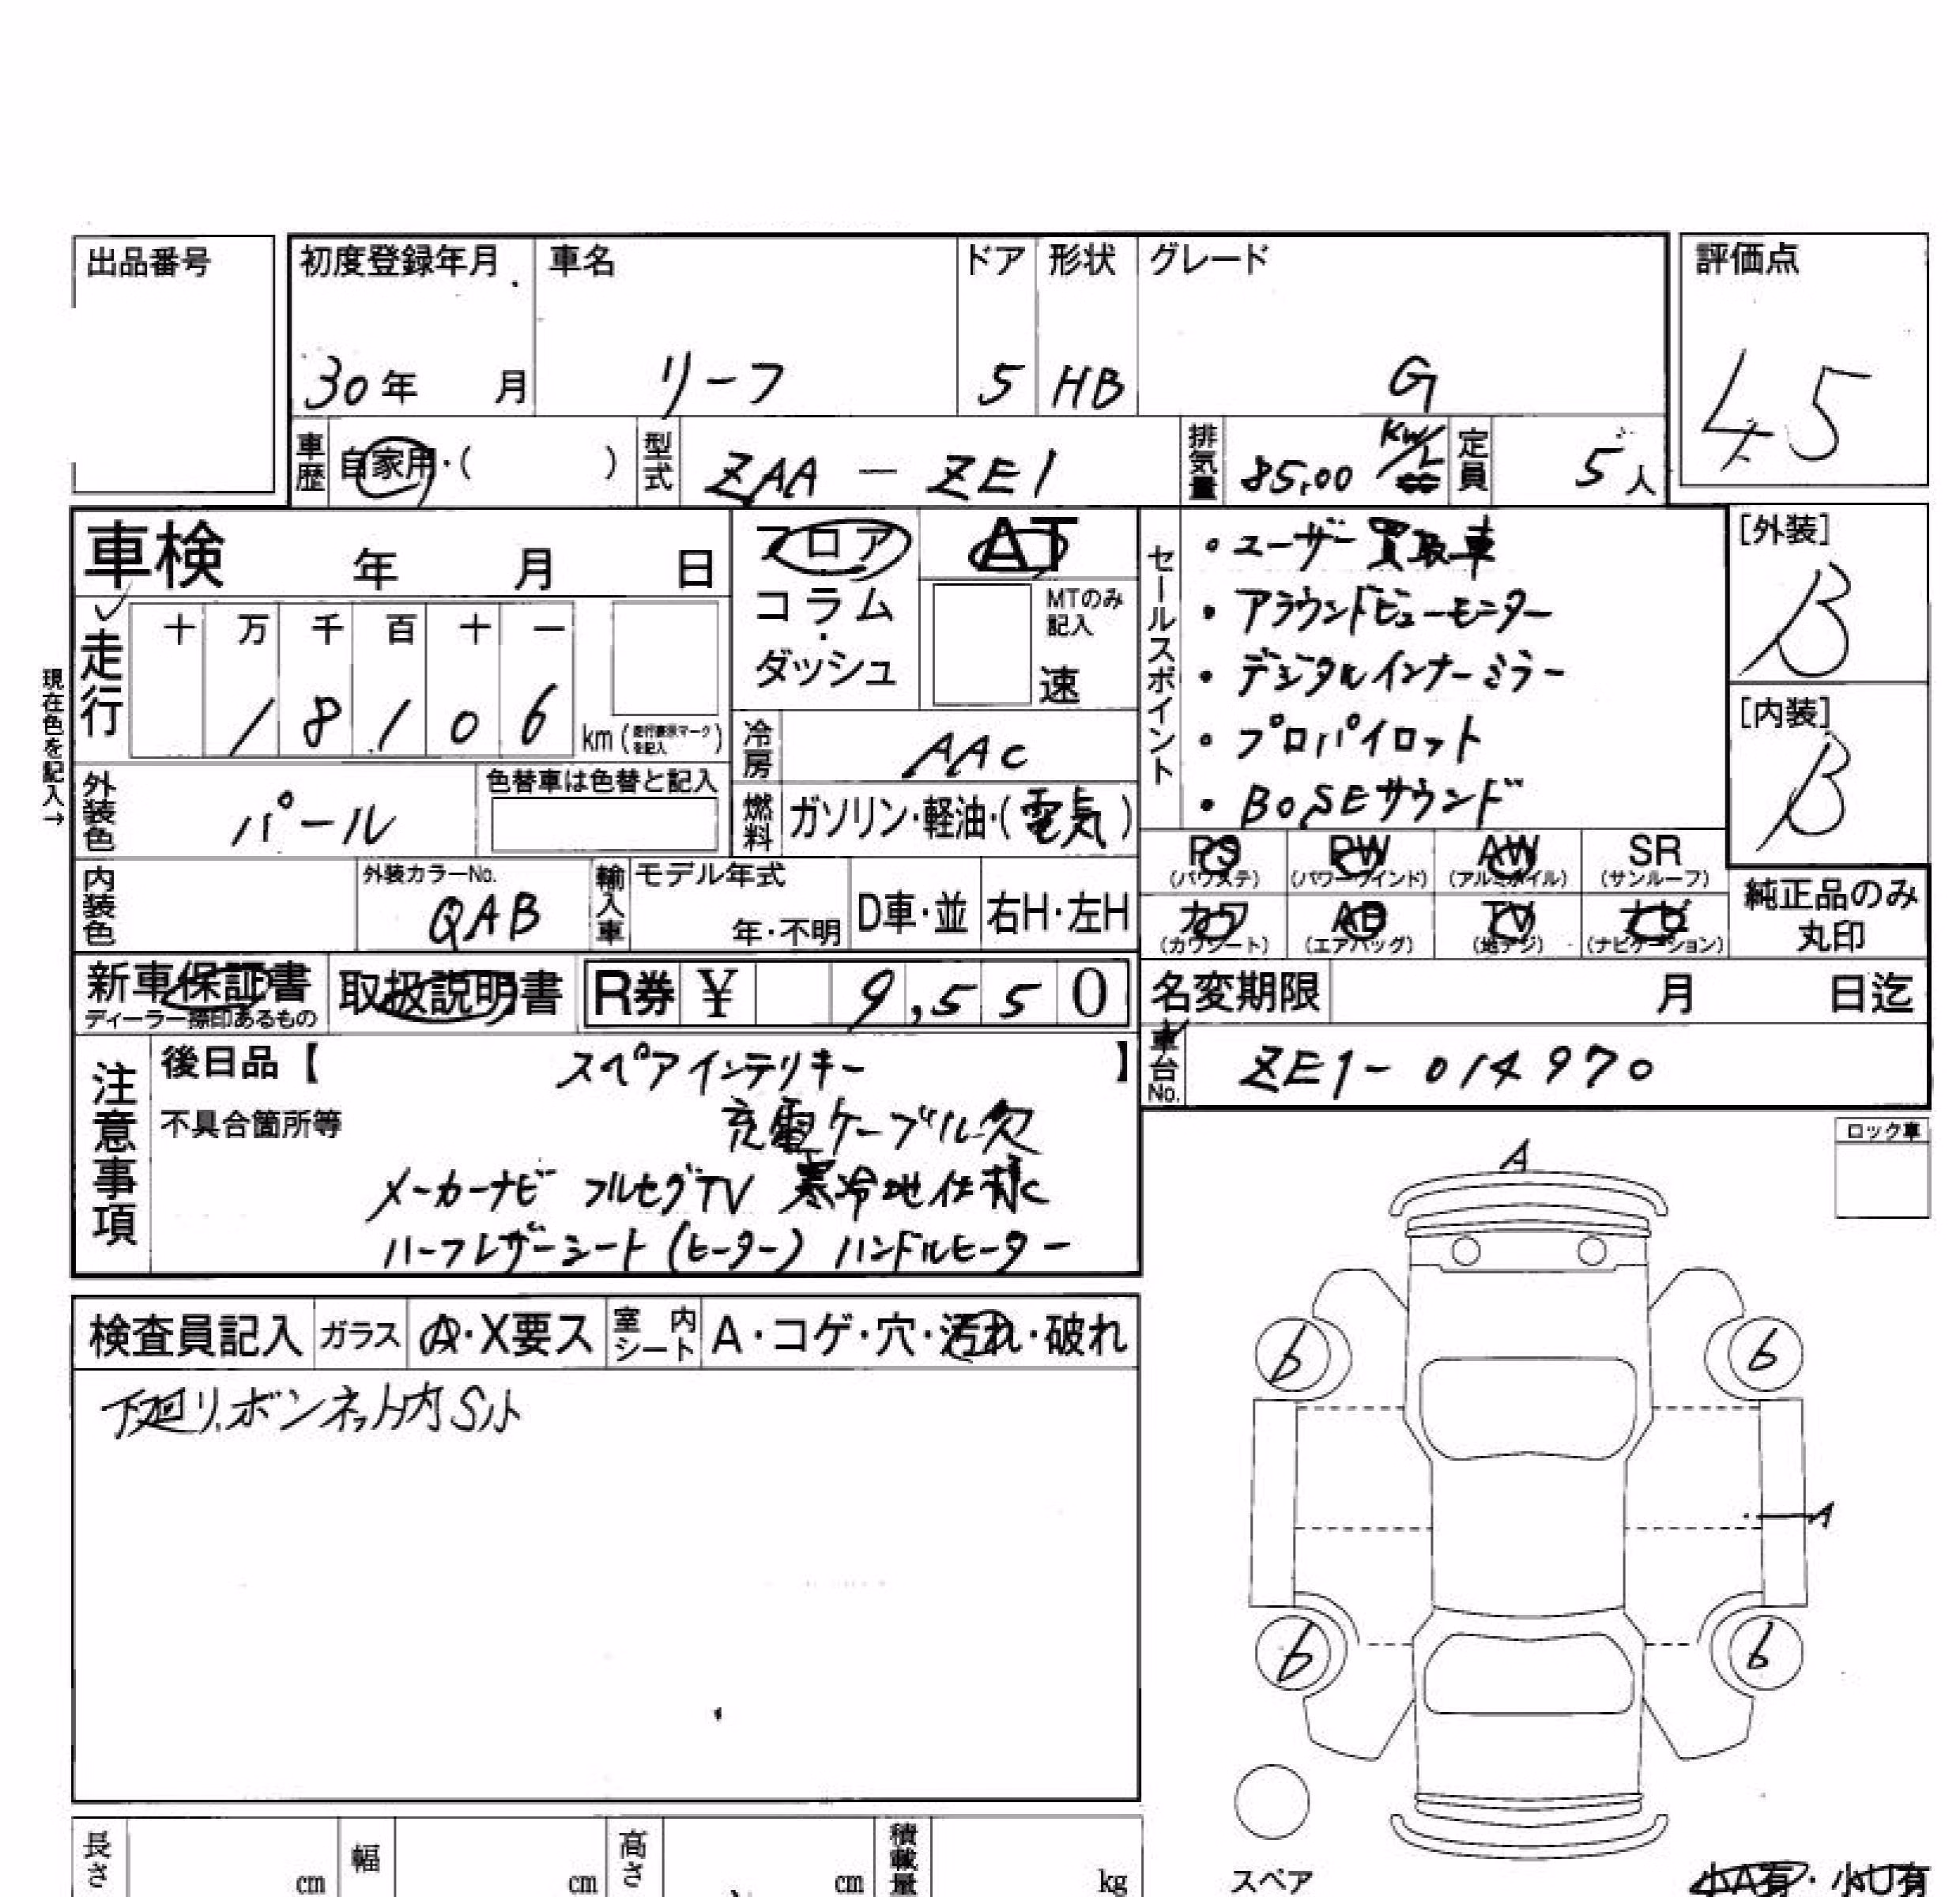 出品番号
初度登録年月 車名 ドア 形状 グレード 評価点
30年 月 リーフ 5 HB G 4.5
車歴 自家用・( ) 型式 ZAA - ZE1 排気量 85.00 KW/L 定員 5人
車検 年 月 日
フロア AT
コラム・ダッシュ MTのみ記入 速
現在色を記入→
走行 十 万 千 百 十 一
1 8 1 0 6 km (走行表示マークを記入)
冷房 AAC
外装色 パール 色替車は色替と記入
燃料 ガソリン・軽油・(電気)
内装色 外装カラーNo. QAB 輸入車 モデル年式 年・不明 D車・並 右H・左H
セールスポイント
・ユーザー買取車
・アラウンドビューモニター
・デジタルインナーミラー
・プロパイロット
・BOSEサウンド
[外装]
B
[内装]
B
PS (パワステ) PW (パワーウインド) AW (アルミホイル) SR (サンルーフ)
カワ (カワシート) AB (エアバッグ) TV (地デジ) ナビ (ナビゲーション)
純正品のみ
丸印
新車保証書 取扱説明書 R券 ¥ 9,550
ディーラー捺印あるもの
名変期限 月 日迄
車台No. ZE1-014970
注意事項
後日品【 スペアインテリキー 】
不具合箇所等 充電ケーブル欠
メーカーナビ フルセグTV 寒冷地仕様
ハーフレザーシート(ヒーター) ハンドルヒーター
検査員記入 ガラス A・X要ス 室内シート A・コゲ・穴・汚れ・破れ
下廻り、ボンネット内Sハト
ロック車
A
6 6
A
6 6
スペア
小A有・小U有
長さ cm 幅 cm 高さ cm 積載量 kg